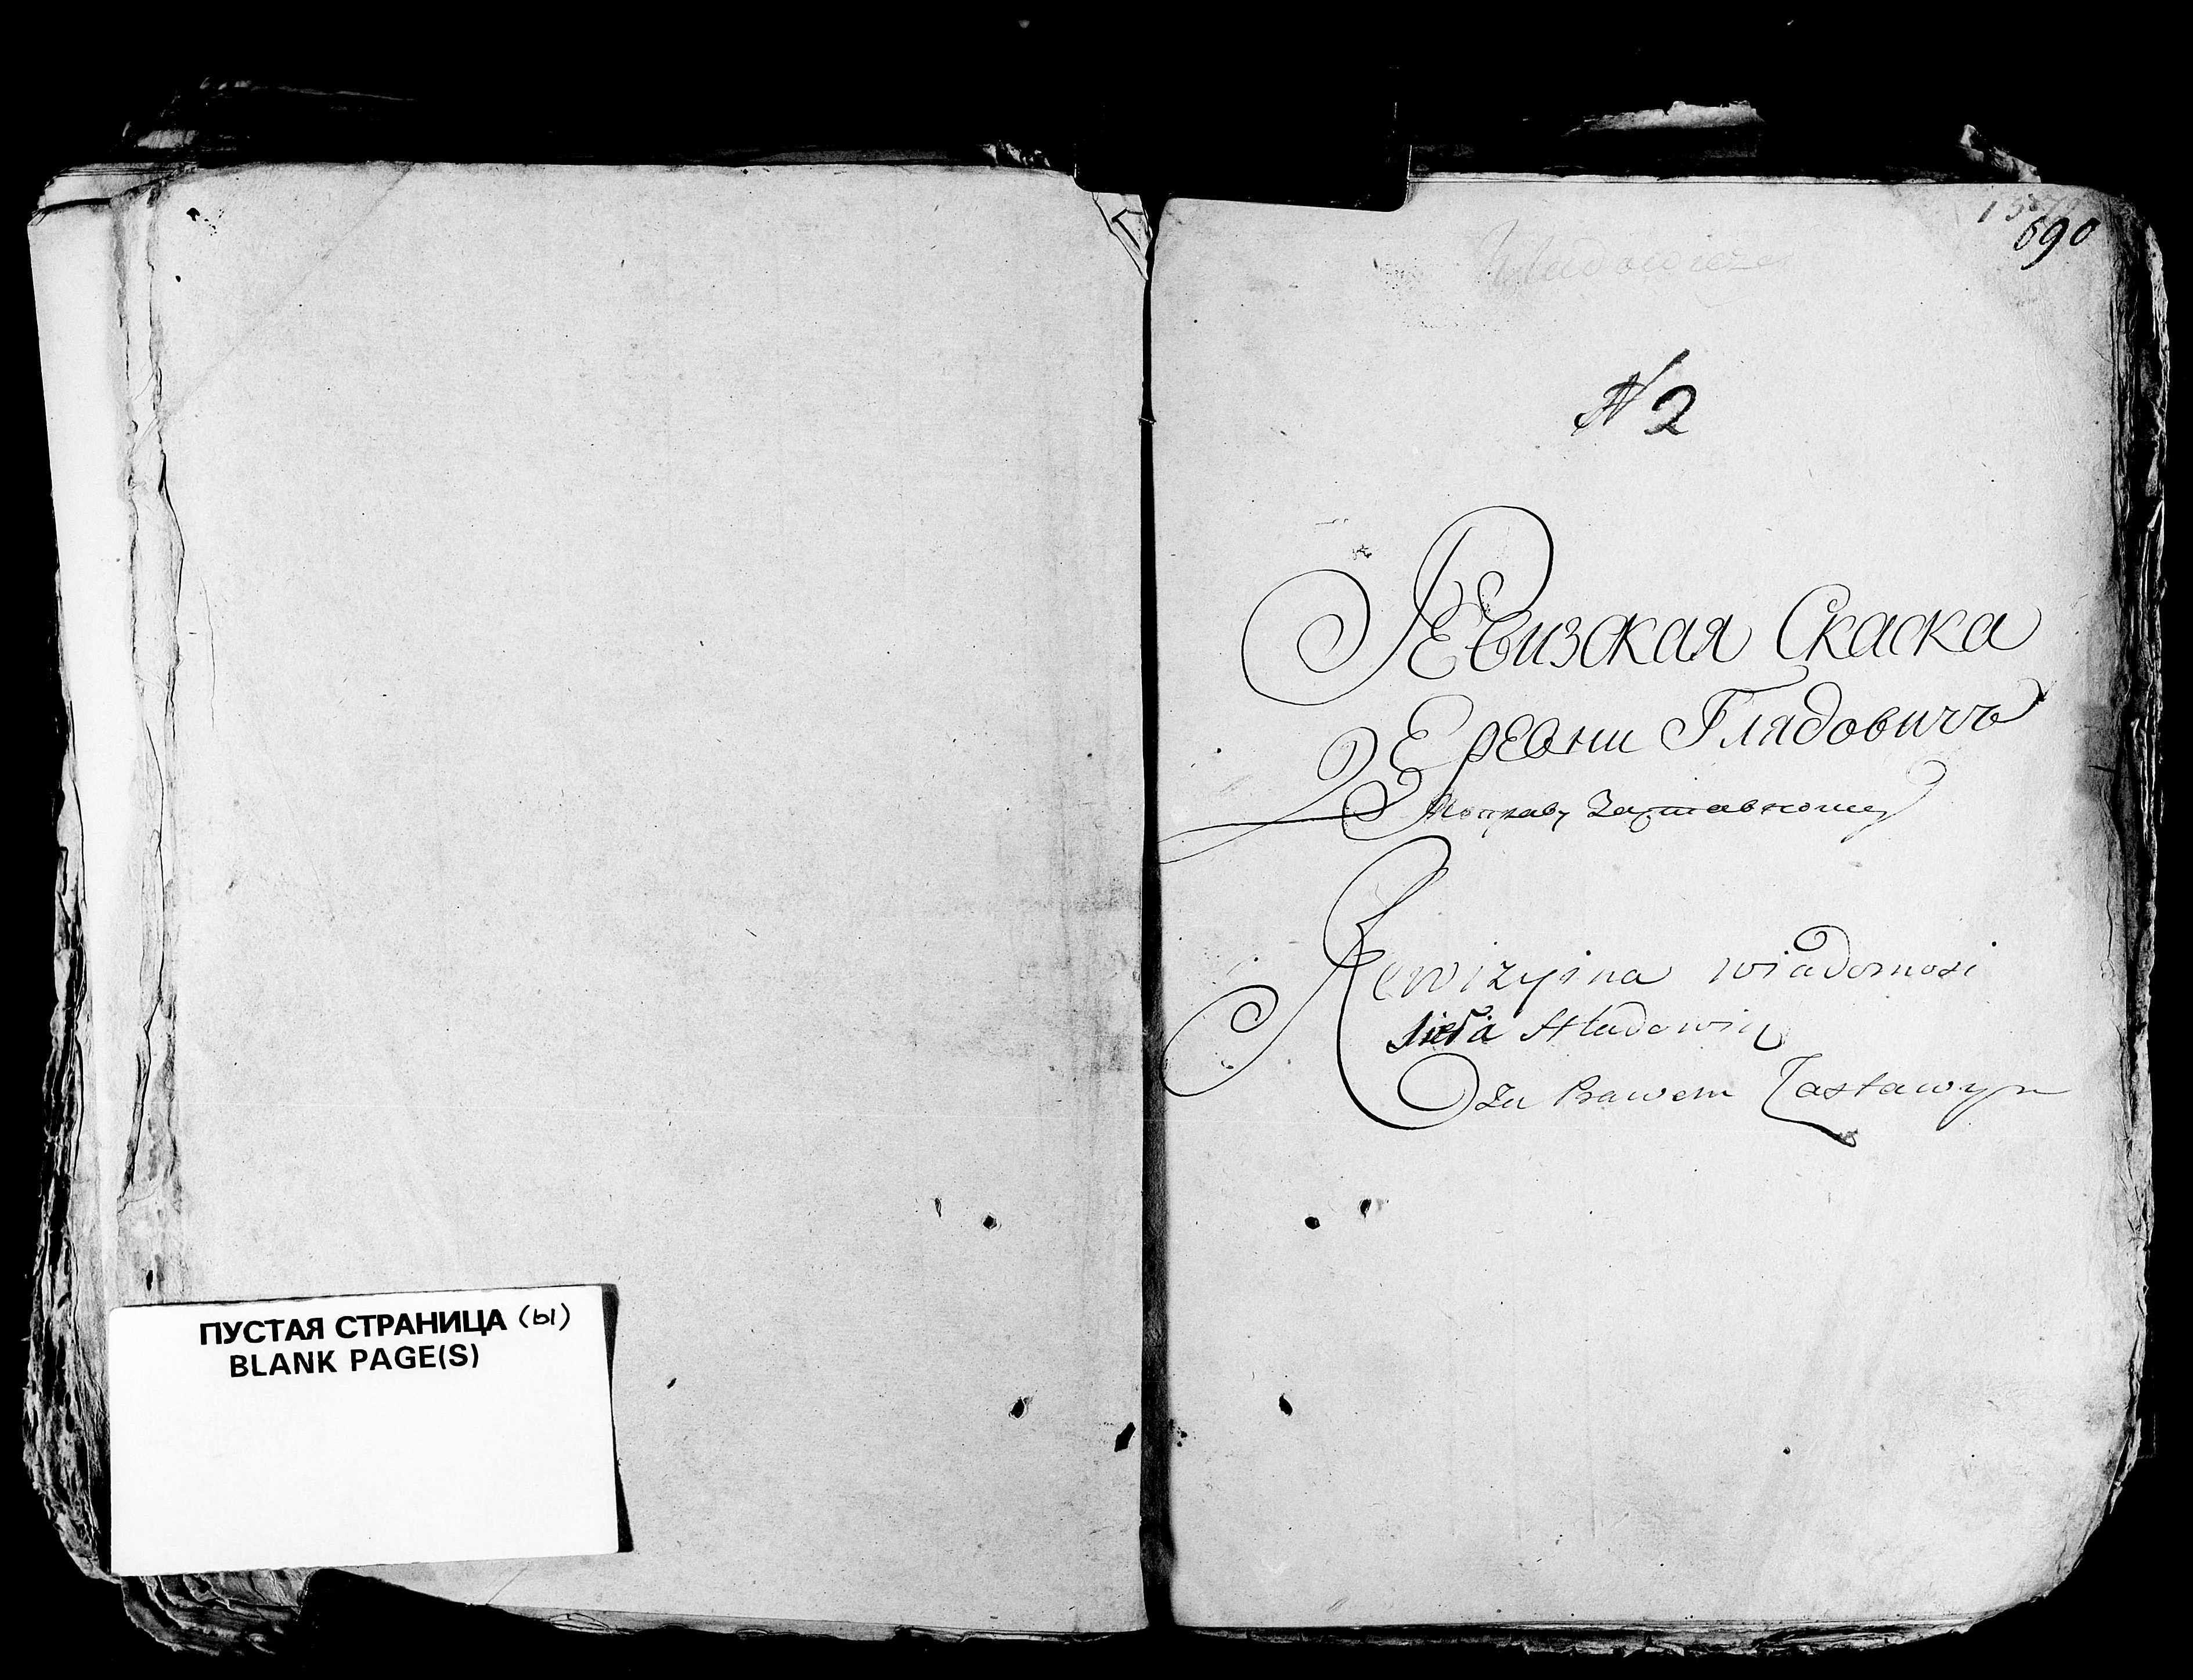 ПУСТАЯ СТРАНИЦА (ы)
BLANK PAGE(S)
690
N 2
Ревизская Скаска
Деревни Глядовичъ
Поправу Заставному
Rewizyina wiadomosi
sieła Hladowicz
Za Prawem Zastawym